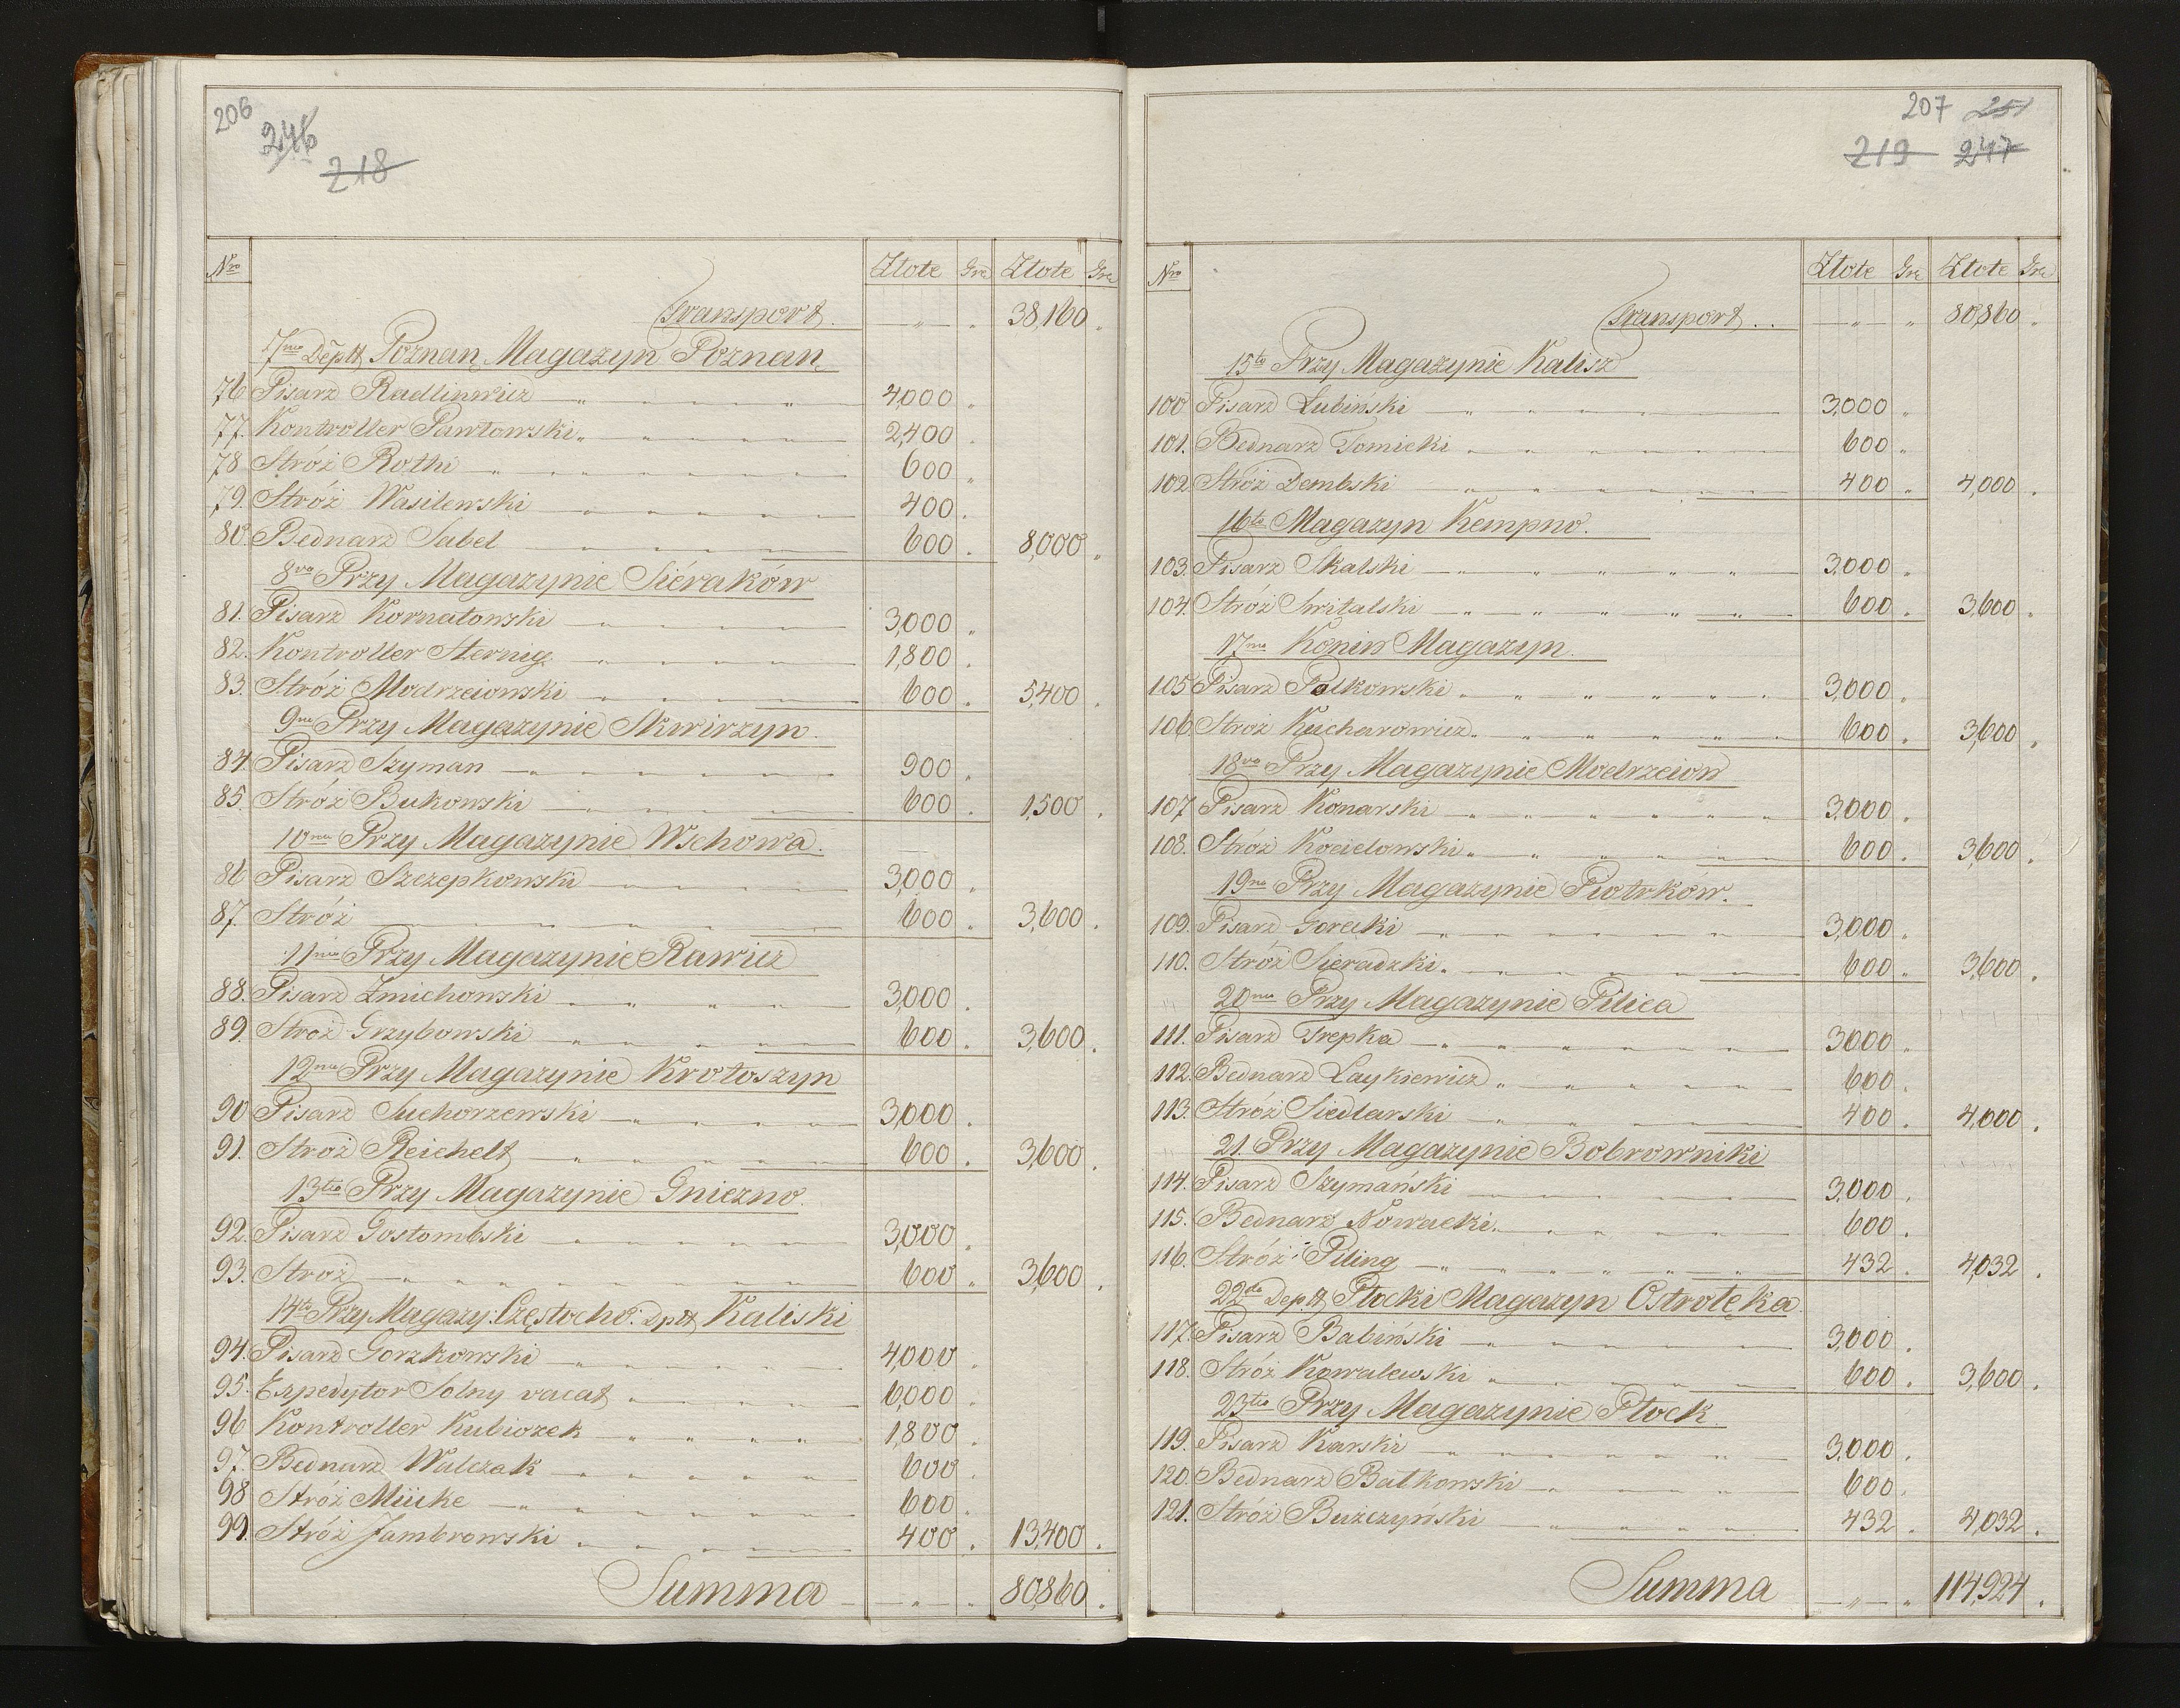 206
246
218
Nro Złote Gr Złote Gr
Transport. — " — " 38,160 "
7mo Deptt Poznań Magazyn Poznań
76 Pisarz Radlinwicz 4,000 "
77. Kontroller Pawłowski 2,400 "
78 Stróż Rothi 600 "
79. Stróż Wasilewski 400 .
80. Bednarz Sabel 600 . 8,000 "
8vo Przy Magazynie Siéraków
81. Pisarz Kornatowski 3,000 "
82. Kontroller Sternig 1,800 .
83. Stróż Modrzeiowski 600 . 5,400 .
9no Przy Magazynie Skwirzyn.
84. Pisarz Szyman 900 "
85. Stróż Bukowski 600 . 1,500 .
10mo Przy Magazynie Wschowa.
86 Pisarz Szczepkowski 3,000 "
87. Stróż 600 . 3,600 .
11mo Przy Magazynie Rawicz
88. Pisarz Żmichowski 3,000 .
89. Stróż Grzybowski 600 . 3,600 .
12mo Przy Magazynie Krotoszyn
90 Pisarz Suchorzewski 3,000 .
91. Stróż Reichelt 600 . 3,600 .
13tio Przy Magazynie Gniezno.
92. Pisarz Gostombski 3,000 .
93. Stróż 600 " 3,600 .
14to Przy Magazy: Częstocho: Dptt Kaliski
94. Pisarz Gorzkowski 4,000 "
95. Expedytor Solny vacat 6,000 .
96 Kontroller Kubiczek 1,800 .
97. Bednarz Walczak 600 .
98 Stróż Mücke 600 .
99. Stróż Jambrowski 400 . 13,400 .
Summa — " — " 80,860 .
207 251
219 247
Nro Złote Gr Złote Gr
Transport.. — " — " 80,860 "
15to Przy Magazynie Kalisz
100 Pisarz Lubiński 3,000 "
101. Bednarz Tomicki 600 "
102 Stróż Dembski 400 " 4,000 .
16to Magazyn Kempno.
103. Pisarz Skalski 3,000 "
104. Stróż Switalski 600 . 3,600 "
17mo Konin Magazyn.
105 Pisarz Polkowski 3,000 "
106 Stróż Kucharowicz 600 . 3,600 .
18vo Przy Magazynie Modrzeiow
107 Pisarz Konarski 3,000 .
108. Stróż Kocielowski 600 . 3,600 .
19no Przy Magazynie Piotrków.
109. Pisarz Gorecki 3,000 .
110. Stróż Sieradzki 600 " 3,600 .
20mo Przy Magazynie Pilica
111. Pisarz Trepka 3000 "
112. Bednarz Laykiewicz 600 .
113. Stróż Siedlarski 400 . 4,000 .
21. Przy Magazynie Bobrowniki
114. Pisarz Szymański 3,000 .
115. Bednarz Nowacki 600 .
116. Stróż Piling 432 . 4,032 .
22do Deptt Płocki Magazyn Ostrołęka
117. Pisarz Babiński 3,000 .
118. Stróż Kowalewski 600 . 3,600 .
23tio Przy Magazynie Płock
119. Pisarz Karski 3,000 .
120. Bednarz Batkowski 600 .
121. Stróż Bużczyński 432 . 4,032 .
Summa — " — " 114,924 .